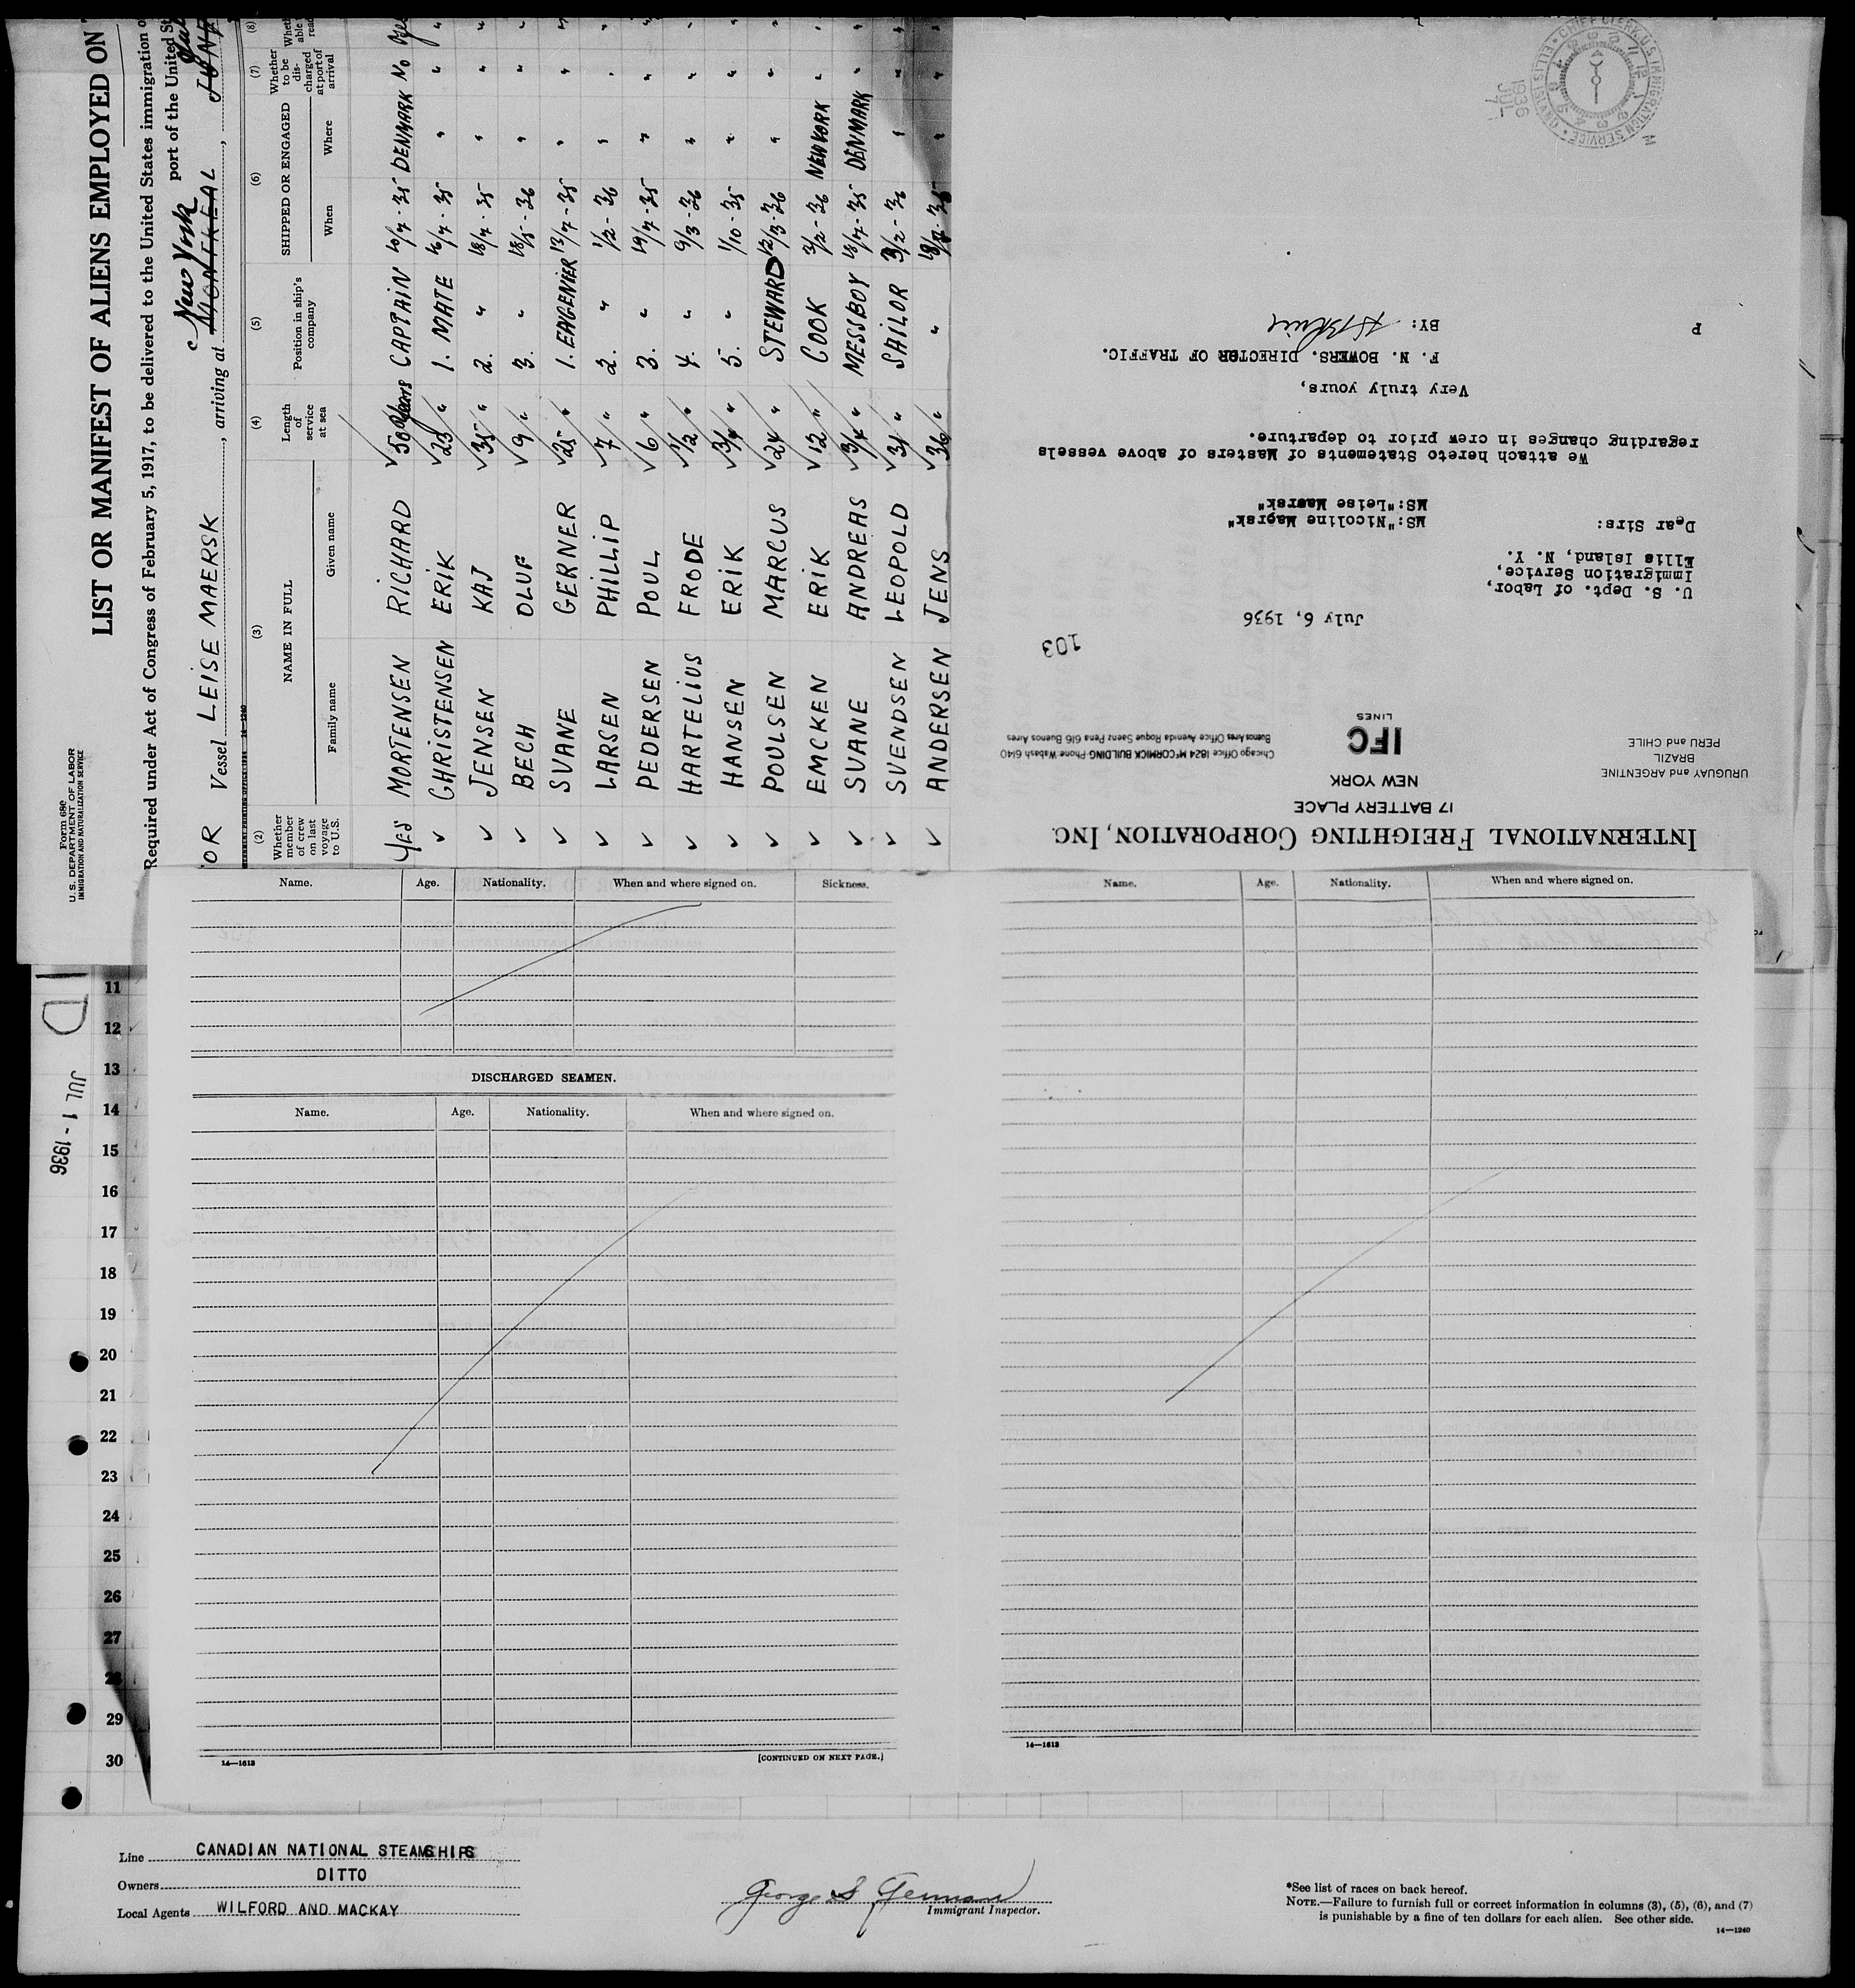 Form 680
U. S. DEPARTMENT OF LABOR
IMMIGRATION AND NATURALIZATION SERVICE
LIST OR MANIFEST OF ALIENS EMPLOYED ON
Required under Act of Congress of February 5, 1917, to be delivered to the United States immigration
port of the United St
OR Vessel LEISE MAERSK, arriving at MONTREAL New York, JUNE
(2) (3) (4) (5) (6) (7) (8)
Whether member of crew on last voyage to U.S.
NAME IN FULL
Family name Given name
Length of service at sea
Position in ship's company
SHIPPED OR ENGAGED
When Where
Whether to be discharged at port of arrival
Yes MORTENSEN RICHARD 50 years CAPTAIN DENMARK No Yes
✓ CHRISTENSEN ERIK 23 " 1. MATE 16/7-35 " "
✓ JENSEN KAJ 35 " 2. " 18/7-35 " "
✓ BECH OLUF 9 " 3. " 18/5-36 " "
✓ SVANE GERNER 25 " 1. EAGENIER 13/7-35 " "
✓ LARSEN PHILLIP 7 " 2. " 1/2-36 " "
✓ PEDERSEN POUL 6 " 3. " 19/7-35 " "
✓ HARTELIUS FRODE 1/2 " 4. " 9/3-36 " "
✓ HANSEN ERIK 3/4 " 5. " 1/10-35 " "
✓ POULSEN MARCUS 24 " STEWARD 12/3-36 " "
✓ EMCKEN ERIK 12 " COOK 3/2-36 NEW YORK "
✓ SVANE ANDREAS 3/4 " MESSBOY 18/7-35 DENMARK "
✓ SVENDSEN LEOPOLD 31 " SAILOR 3/2-36 " "
✓ ANDERSEN JENS 36 " " " "
INTERNATIONAL FREIGHTING CORPORATION, INC.
17 BATTERY PLACE
NEW YORK
URUGUAY and ARGENTINE
BRAZIL
PERU and CHILE
IFC
LINES
Chicago Office 1824 McCORMICK BUILDING-Phone-Wabash 6140
Buenos Aires Office Avenida Roque Saenz Pena 616 Buenos Aires
103
July 6, 1936
U. S. Dept. of Labor,
Immigration Service,
Ellis Island, N. Y.
Dear Sirs:
MS:"Nicoline Maersk"
MS:"Leise Maersk"
We attach hereto Statements of Masters of above vessels
regarding changes in crew prior to departure.
Very truly yours,
F. N. BOWERS. DIRECTOR OF TRAFFIC.
BY:
P
CHIEF CLERK, U.S. IMMIGRATION SERVICE • ELLIS ISLAND •
1936
JUL
7
M
Name. Age. Nationality. When and where signed on. Sickness.
DISCHARGED SEAMEN.
Name. Age. Nationality. When and where signed on.
14—1613
[CONTINUED ON NEXT PAGE.]
Name. Age. Nationality. When and where signed on.
14—1613
D
JUL 1 - 1936
11
12
13
14
15
16
17
18
19
20
21
22
23
24
25
26
27
28
29
30
Line CANADIAN NATIONAL STEAMSHIPS
Owners DITTO
Local Agents WILFORD AND MACKAY
George S German
Immigrant Inspector.
*See list of races on back hereof.
NOTE.—Failure to furnish full or correct information in columns (3), (5), (6), and (7)
is punishable by a fine of ten dollars for each alien. See other side.
14—1240